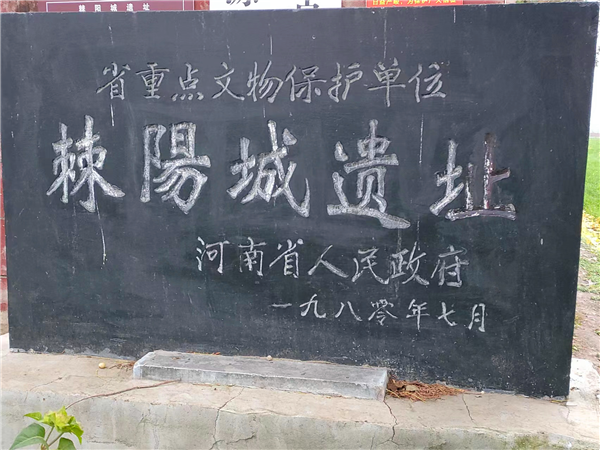 棘阳城遗址
省重点文物保护单位
棘陽城遗址
河南省人民政府
一九八零年七月